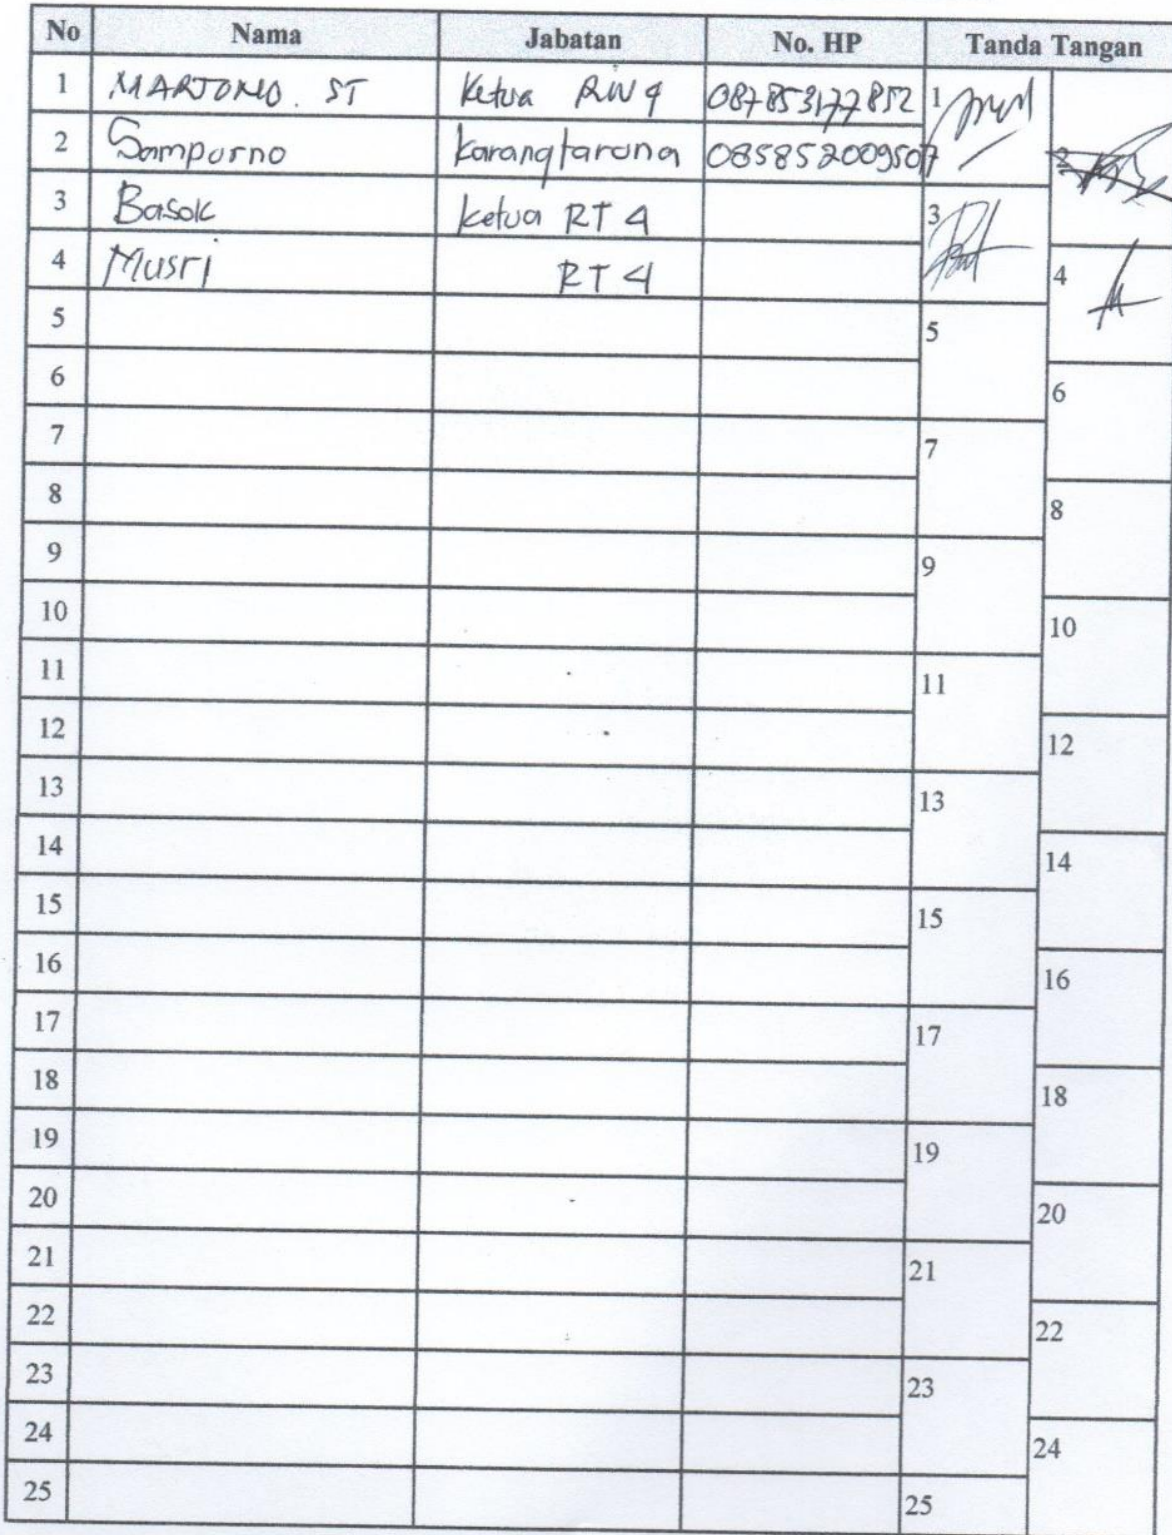 No Nama Jabatan No. HP Tanda Tangan
1 MARTONO. ST Ketua RW 4 087853177852 1
2 Sampurno Karangtaruna 085852009507 2
3 Basok Ketua RT 4 3
4 Musri RT 4 4
5 5
6 6
7 7
8 8
9 9
10 10
11 11
12 12
13 13
14 14
15 15
16 16
17 17
18 18
19 19
20 20
21 21
22 22
23 23
24 24
25 25